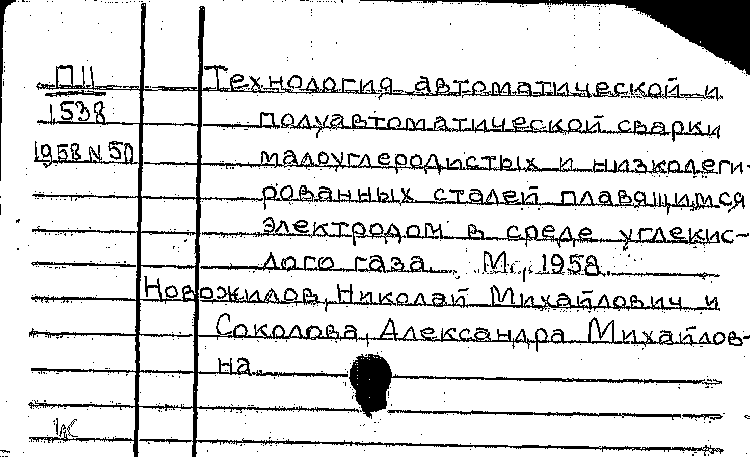 П11 Технология автоматической и
1538 полуавтоматической сварки
1958 N 50 малоуглеродистых и низколеги-
рованных сталей плавящимся
электродом в среде углекис-
лого газа. М., 1958.
Новожилов, Николай Михайлович и
Соколова, Александра Михайлов-
на